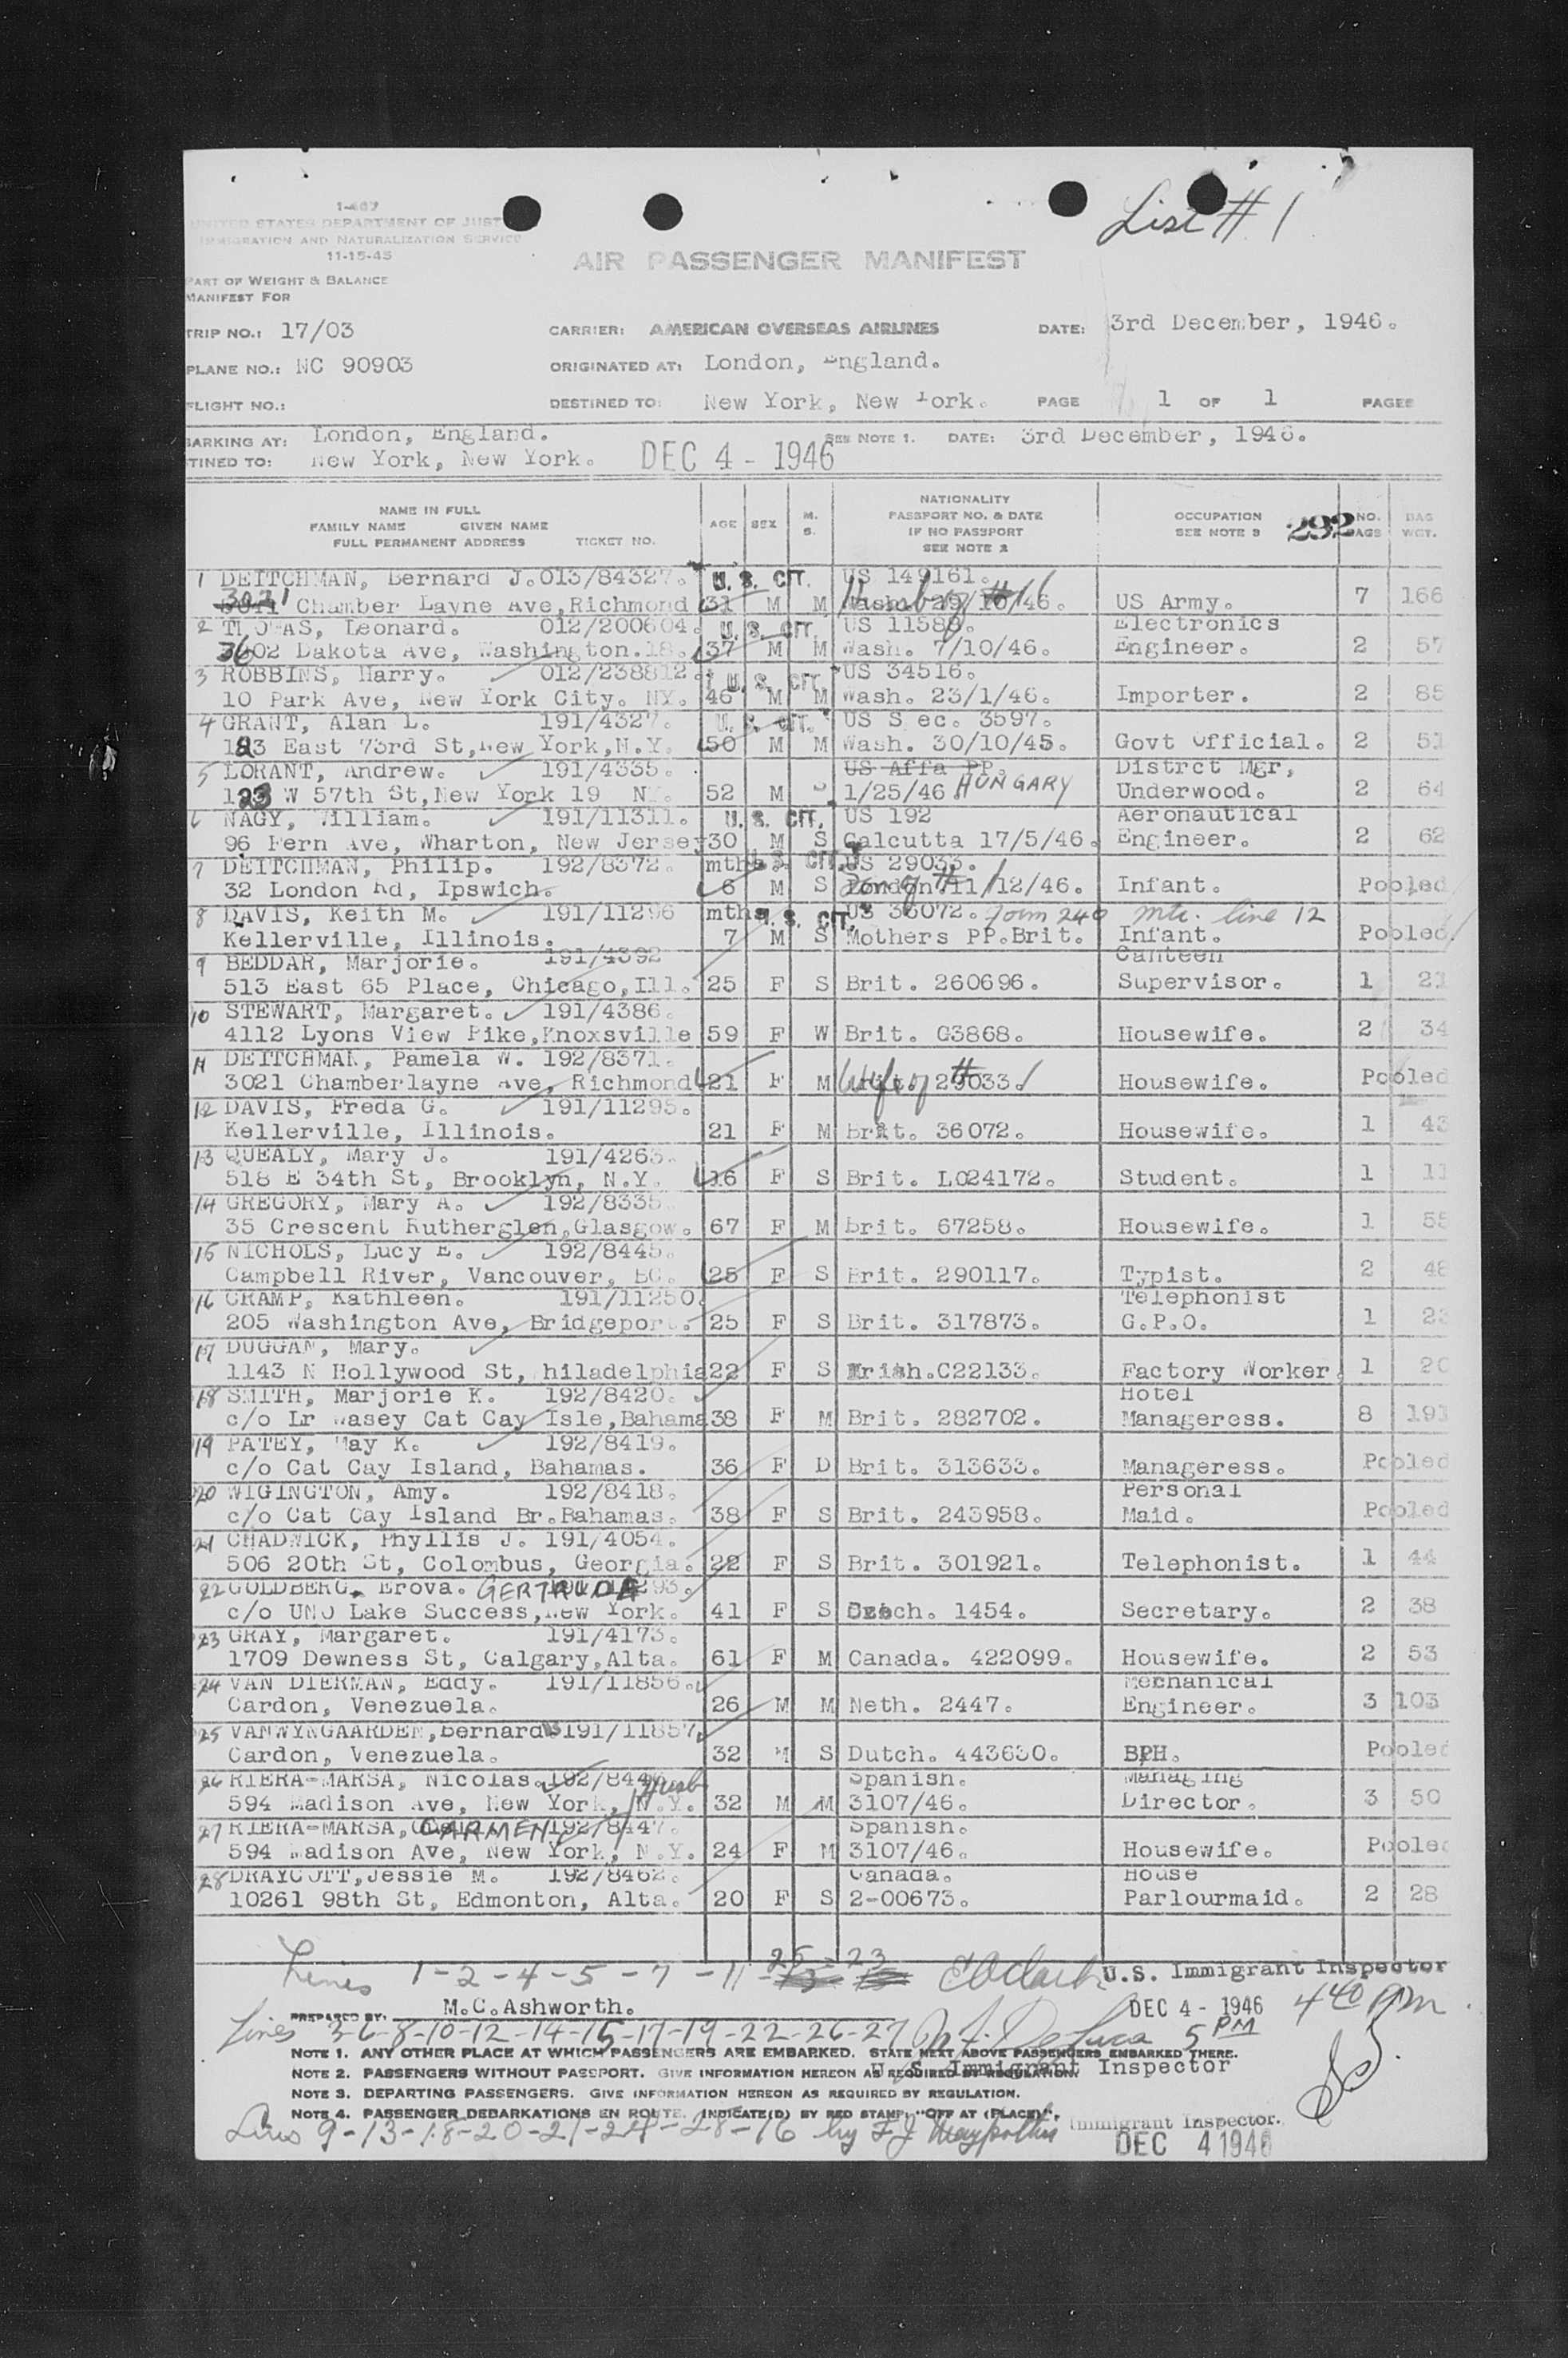 List # 1
1-467
UNITED STATES DEPARTMENT OF JUST
IMMIGRATION AND NATURALIZATION SERVICE
11-15-45
AIR PASSENGER MANIFEST
PART OF WEIGHT & BALANCE
MANIFEST FOR
TRIP NO.: 17/03 CARRIER: AMERICAN OVERSEAS AIRLINES DATE: 3rd December, 1946.
PLANE NO.: NC 90903 ORIGINATED AT: London, England.
FLIGHT NO.: DESTINED TO: New York, New York. PAGE 1 OF 1 PAGES
BARKING AT: London, England. SEE NOTE 1. DATE: 3rd December, 1946.
TINED TO: New York, New York. DEC 4 - 1946
NAME IN FULL
FAMILY NAME GIVEN NAME
FULL PERMANENT ADDRESS TICKET NO. AGE SEX M. S. NATIONALITY PASSPORT NO. & DATE IF NO PASSPORT SEE NOTE 2 OCCUPATION SEE NOTE 3 292 NO. AGS BAG WGT.
1 DEITCHMAN, Bernard J. 013/84327. U. S. CIT. US 149161.
3021 Chamber Layne Ave, Richmond 31 M M Wash. 29/10/46. US Army. 7 166
2 THOMAS, Leonard. 012/200604. U. S. CIT. US 11589. Electronics
3602 Dakota Ave, Washington.18. 37 M M Wash. 7/10/46. Engineer. 2 57
3 ROBBINS, Harry. 012/238812. U. S. CIT. US 34516.
10 Park Ave, New York City. NY. 46 M M Wash. 23/1/46. Importer. 2 85
4 GRANT, Alan L. 191/4327. U. S. CIT. US S ec. 3597.
123 East 73rd St, New York, N.Y. 50 M M Wash. 30/10/45. Govt Official. 2 51
5 LORANT, Andrew. 191/4335. US Affa PP. Distrct Mgr,
123 W 57th St, New York 19 NY. 52 M S 1/25/46 HUNGARY Underwood. 2 64
6 NAGY, William. 191/11311. U. S. CIT. US 192 Aeronautical
96 Fern Ave, Wharton, New Jersey 30 M S Calcutta 17/5/46. Engineer. 2 62
7 DEITCHMAN, Philip. 192/8372. mths U. S. CIT. US 29033.
32 London Rd, Ipswich. 6 M S London 11/12/46. Infant. Pooled
8 DAVIS, Keith M. 191/11296 mths U. S. CIT. US 36072. Form 240 mtr. line 12
Kellerville, Illinois. 7 M S Mothers PP.Brit. Infant. Pooled
9 BEDDAR, Marjorie. 191/4392 Canteen
513 East 65 Place, Chicago, Ill. 25 F S Brit. 260696. Supervisor. 1 21
10 STEWART, Margaret. 191/4386.
4112 Lyons View Pike, Knoxsville 59 F W Brit. G3868. Housewife. 2 34
11 DEITCHMAN, Pamela W. 192/8371.
3021 Chamberlayne Ave, Richmond 21 F M Wife of # 1 29033. Housewife. Pooled
12 DAVIS, Freda G. 191/11295.
Kellerville, Illinois. 21 F M Brit. 36072. Housewife. 1 43
13 QUEALY, Mary J. 191/4263.
518 E 34th St, Brooklyn, N.Y. 16 F S Brit. L024172. Student. 1 11
14 GREGORY, Mary A. 192/8335.
35 Crescent Rutherglen, Glasgow. 67 F M Brit. 67258. Housewife. 1 55
15 NICHOLS, Lucy E. 192/8445.
Campbell River, Vancouver, BC. 25 F S Brit. 290117. Typist. 2 48
16 CRAMP, Kathleen. 191/11250. Telephonist
205 Washington Ave, Bridgeport. 25 F S Brit. 317873. G.P.O. 1 23
17 DUGGAN, Mary.
1143 N Hollywood St, hiladelphia 22 F S Irish.C22133. Factory Worker. 1 20
18 SMITH, Marjorie K. 192/8420. Hotel
c/o Lr Wasey Cat Cay Isle, Bahama 38 F M Brit. 282702. Manageress. 8 191
19 PATEY, May K. 192/8419.
c/o Cat Cay Island, Bahamas. 36 F D Brit. 313633. Manageress. Pooled
20 WIGINGTON, Amy. 192/8418. Personal
c/o Cat Cay Island Br.Bahamas. 38 F S Brit. 243958. Maid. Pooled
21 CHADWICK, Phyllis J. 191/4054.
506 20th St, Colombus, Georgia. 22 F S Brit. 301921. Telephonist. 1 44
22 GOLDBERG, Erova. GERTRUDA 293.
c/o UNO Lake Success, New York. 41 F S Czech. 1454. Secretary. 2 38
23 GRAY, Margaret. 191/4173.
1709 Dewness St, Calgary, Alta. 61 F M Canada. 422099. Housewife. 2 53
24 VAN DIERMAN, Eddy. 191/11856. Mechanical
Cardon, Venezuela. 26 M M Neth. 2447. Engineer. 3 103
25 VANWYNGAARDEN, Bernardus 191/11857.
Cardon, Venezuela. 32 M S Dutch. 443630. BPH. Pooled
26 RIERA-MARSA, Nicolas. 192/8446. Spanish. Managing
594 Madison Ave, New York, N.Y. 32 M M 3107/46. Director. 3 50
27 RIERA-MARSA, CARMEN 192/8447. Spanish.
594 Madison Ave, New York, N.Y. 24 F M 3107/46. Housewife. Pooled
28 DRAYCOTT, Jessie M. 192/8462. Canada. House
10261 98th St, Edmonton, Alta. 20 F S 2-00673. Parlourmaid. 2 28
Lines 1-2-4-5-7-11-25-23 U.S. Immigrant Inspector
PREPARED BY: M.C.Ashworth. DEC 4 - 1946 4 40 pm.
Lines 3-6-8-10-12-14-15-17-19-22-26-27 De Luca 5 PM
NOTE 1. ANY OTHER PLACE AT WHICH PASSENGERS ARE EMBARKED. STATE NEXT ABOVE PASSENGERS EMBARKED THERE.
NOTE 2. PASSENGERS WITHOUT PASSPORT. GIVE INFORMATION HEREON AS REQUIRED BY REGULATION.
U. S. Immigrant Inspector
NOTE 3. DEPARTING PASSENGERS. GIVE INFORMATION HEREON AS REQUIRED BY REGULATION.
NOTE 4. PASSENGER DEBARKATIONS EN ROUTE. INDICATE(D) BY RED STAMP, "OFF AT (PLACE)".
Lines 9-13-18-20-21-24-28-16 by Immigrant Inspector.
DEC 4 1946